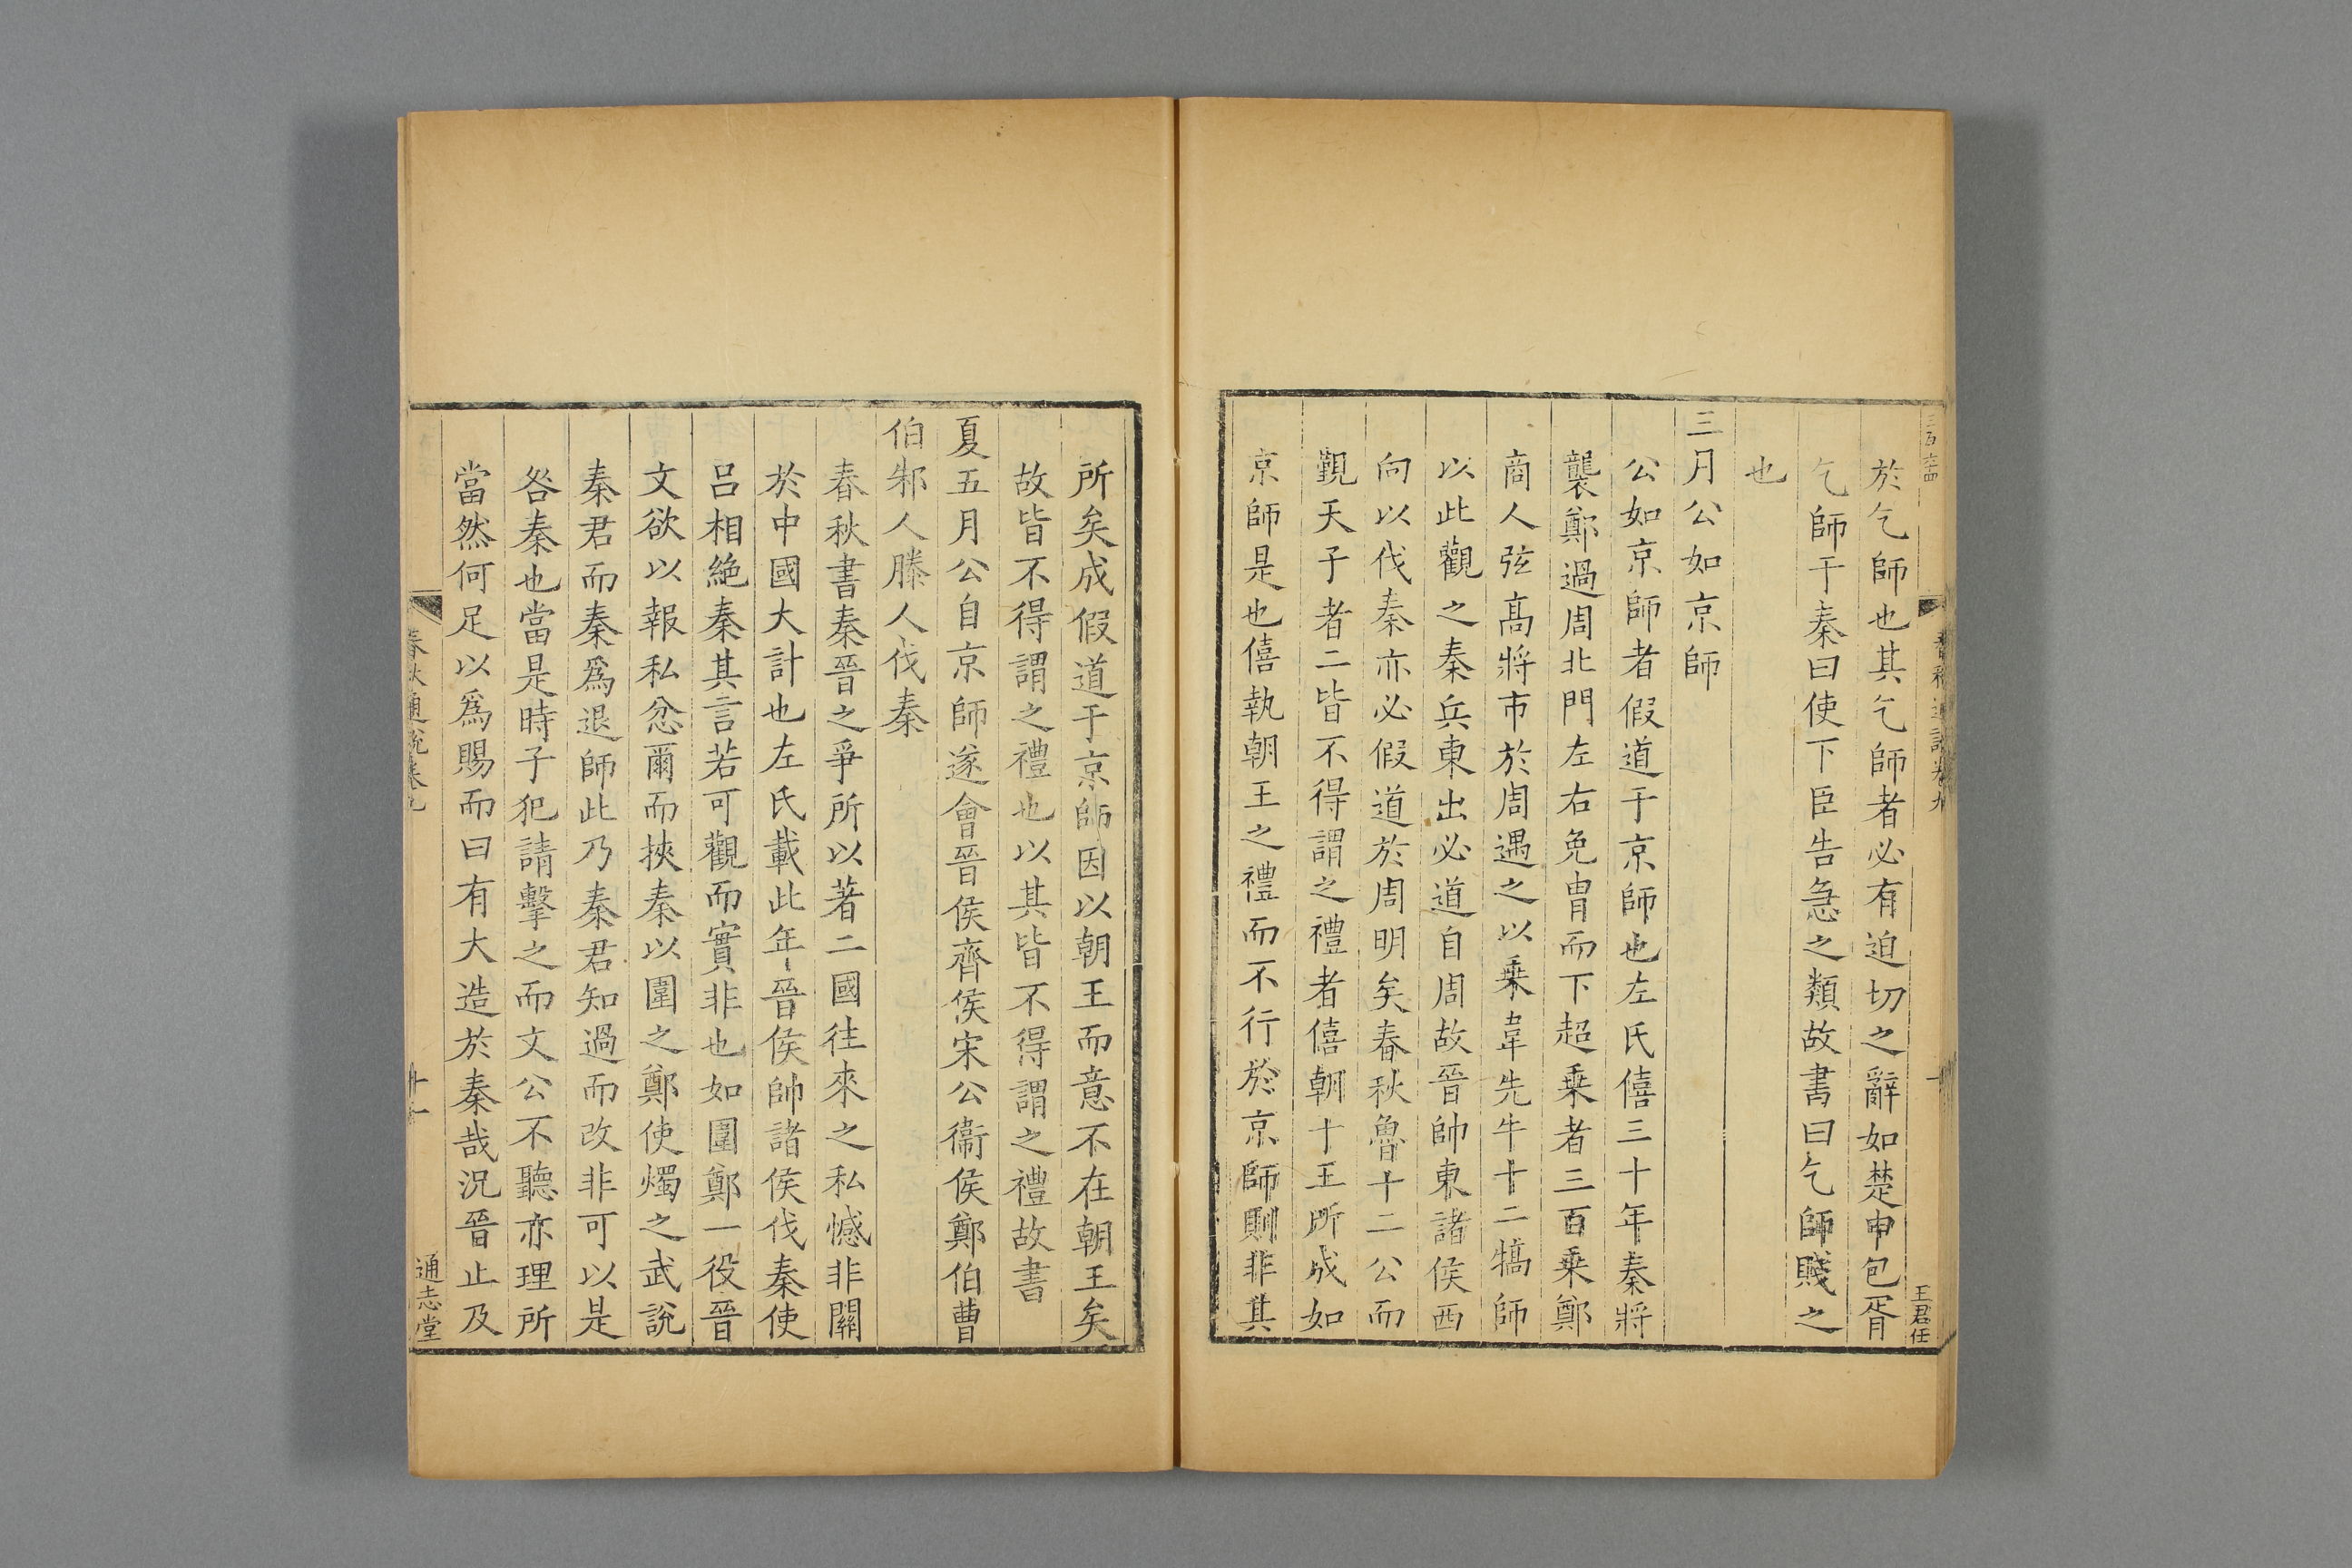 於乞師也其乞師者必有迫切之辭如楚申包胥
乞師于秦曰使下臣告急之類故書曰乞師賤之
也
三月公如京師
公如京師者假道于京師也左氏僖三十年秦將
襲鄭過周北門左右免冑而下超乗者三百乗鄭
商人弦高將市於周遇之以乗韋先牛十二犒師
以此觀之秦兵東出必道自周故晉帥東諸侯西
向以伐秦亦必假道於周明矣春秋魯十二公而
覲天子者二皆不得謂之禮者僖朝于王所成如
京師是也僖執朝王之禮而不行於京師則非其
所矣成假道于京師因以朝王而意不在朝王矣
故皆不得謂之禮也以其皆不得謂之禮故書
夏五月公自京師遂會晉侯齊侯宋公衞侯鄭伯曹
伯邾人滕人伐秦
春秋書秦晉之爭所以著二國往來之私憾非關
於中國大計也左氏載此年晉侯帥諸侯伐秦使
呂相絶秦其言若可觀而實非也如圍鄭一役晉
文欲以報私忿爾而挾秦以圍之鄭使燭之武説
秦君而秦爲退師此乃秦君知過而改非可以是
咎秦也當是時子犯請擊之而文公不聽亦理所
當然何足以爲賜而曰有大造於秦哉況晉止及
春秋通説卷九
十一
通志堂
春秋通説卷九
王君任